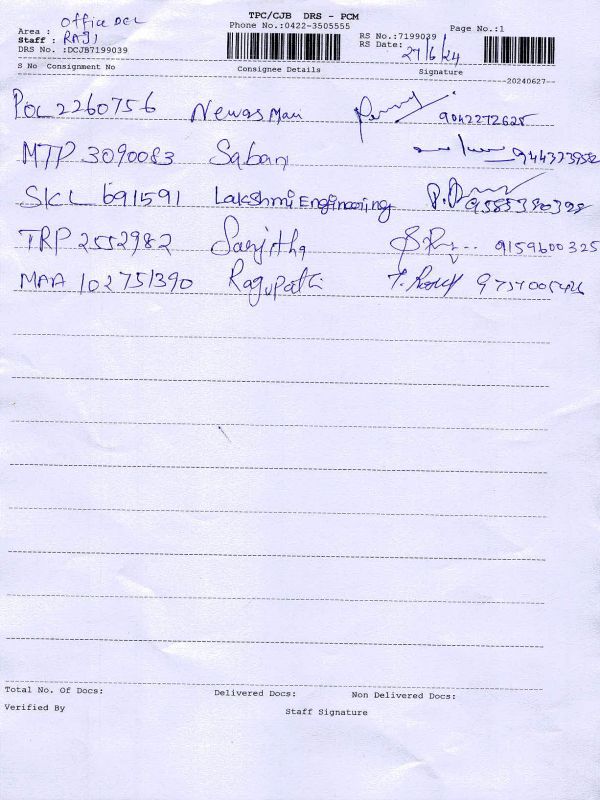 TPC/CJB DRS - PCM
Area : Office Del
Phone No.:0422-3505555
Page No.:1
Staff : RAJI
RS No.:7199039
DRS No. :DCJB7199039
RS Date: 27/6/24
S No Consignment No Consignee Details Signature
--20240627--
POL 2260756 Newas Mani 9042272625
MTP 3090083 Sabari
SKL 691591 Lakshmi Engineering 9585380398
TRP 2552982 Sanjitha 9159600325
MAA 102751390 Ragupathi
Total No. Of Docs: Delivered Docs: Non Delivered Docs:
Verified By Staff Signature